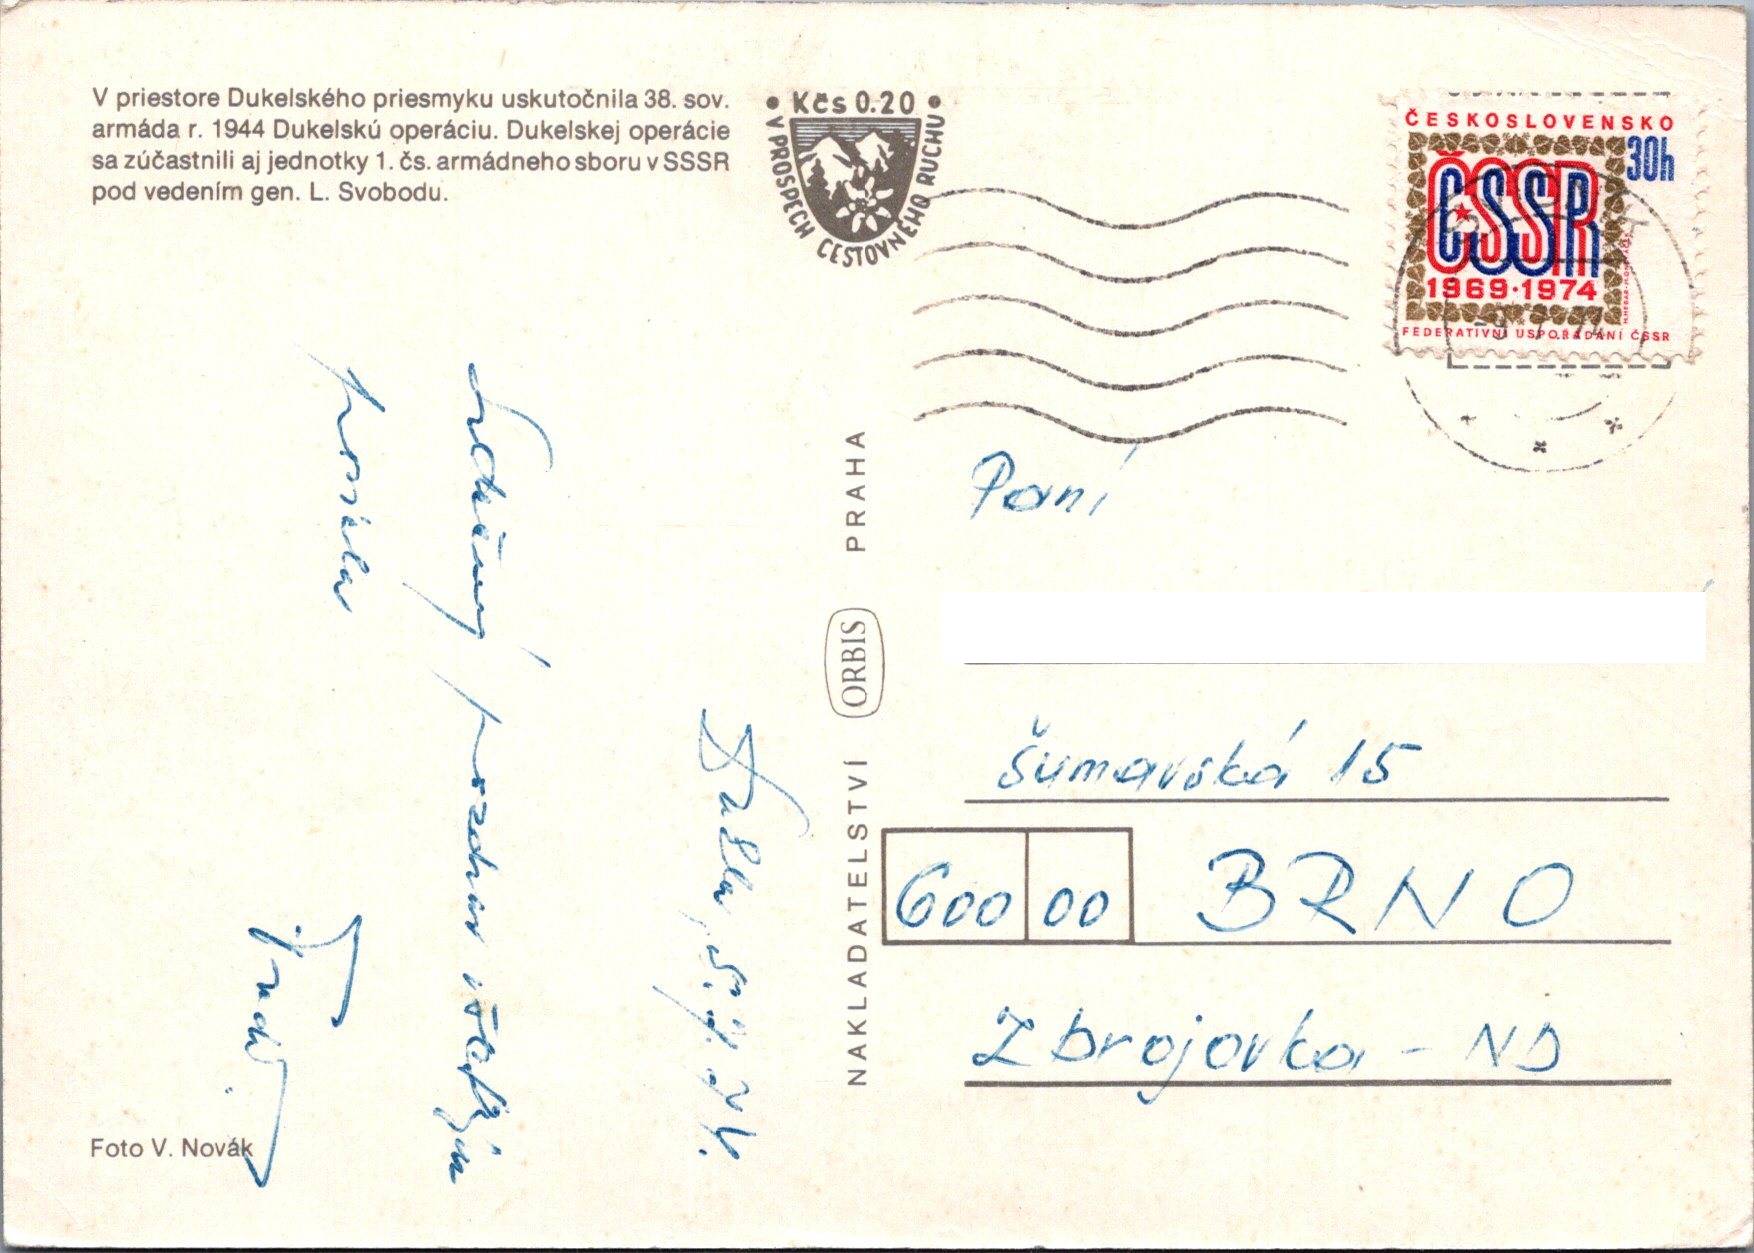 V priestore Dukelského priesmyku uskutočnila 38. sov.
armáda r. 1944 Dukelskú operáciu. Dukelskej operácie
sa zúčastnili aj jednotky 1. čs. armádneho sboru v SSSR
pod vedením gen. L. Svobodu.
• Kčs 0.20 •
V PROSPECH CESTOVNÉHO RUCHU
ČESKOSLOVENSKO
30h
ČSSR
1969·1974
FEDERATIVNÍ USPOŘÁDÁNÍ ČSSR
Dukla, 5.7.74.
Srdečný pozdrav všem
posílá
NAKLADATELSTVÍ ORBIS PRAHA
Paní
Šumavská 15
600 00 BRNO
Zbrojovka - ND
Foto V. Novák